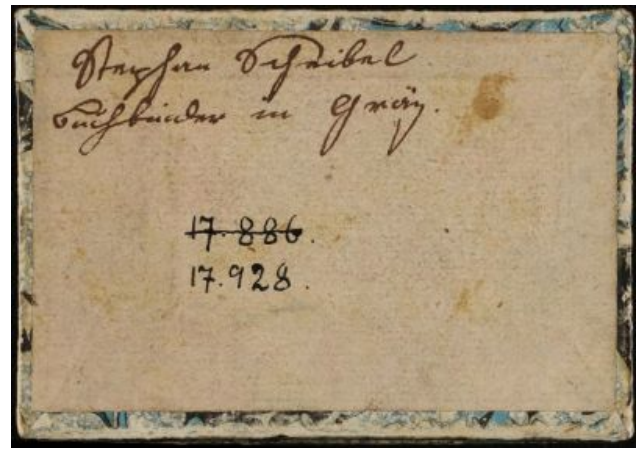 Stephan Scheibel
buchbinder in Gräz.
17.886.
17.928.